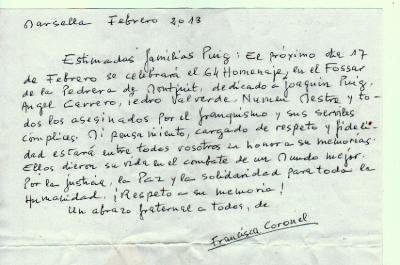 Marsella Febrero 2013
Estimadas familias Puig: El próximo dia 17
de Febrero se celebrará el 64 Homenaje, en el Fossar
de la Pedrera de Montjuit, dedicado a Joaquin Puig,
Angel Carrero, Pedro Valverde, Numen Mestre y to-
dos los asesinados por el franquismo y sus serviles
cómplices. Mi pensamiento, cargado de respeto y fideli-
dad estará entre todos vosotros en honor a su memorias.
Ellos dieron su vida en el combate de un Mundo mejor.
Por la justicia, la Paz y la solidaridad para toda la
Humanidad. ¡Respeto a su memoria!
Un abrazo fraternal a todos, de
Francisca Coronel